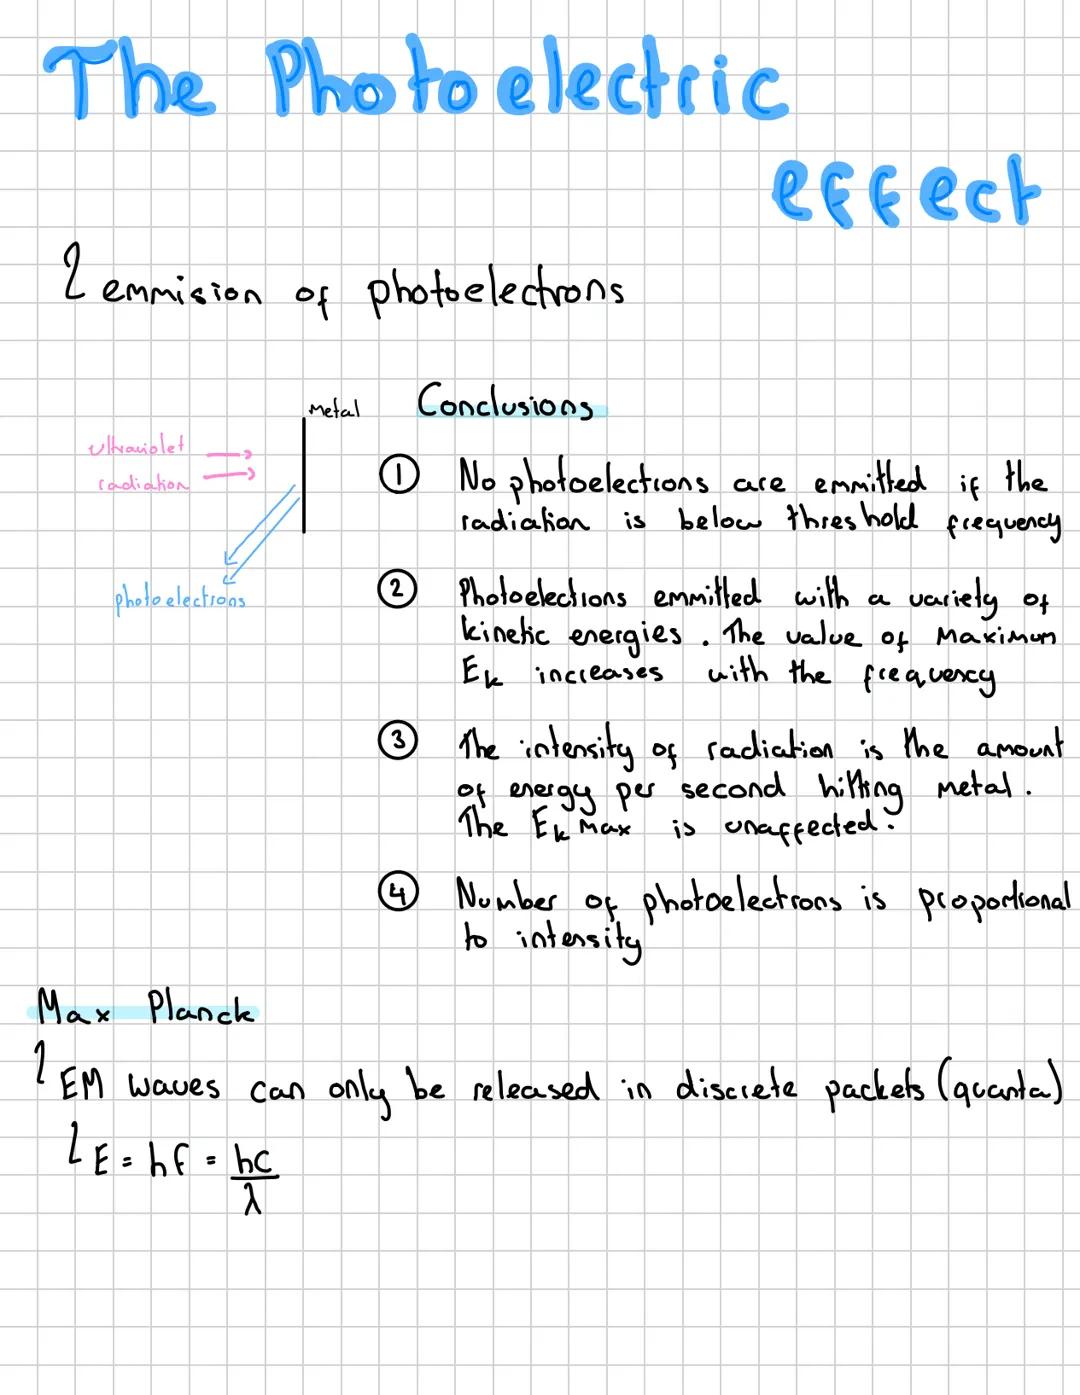 The Photoelectric
effect
emmision of photoelectrons
Metal
ultraviolet
radiation
photoelectrons
Conclusions
① No photoelectrons are emmitted if the
radiation is below threshold frequency
② Photoelectrons emmitted with a variety of
kinetic energies. The value of Maximum
Ek increases with the frequency
③ The intensity of radiation is the amount
of energy per second hitting metal.
The Ek Max is unaffected.
④ Number of photoelectrons is proportional
to intensity
Max Planck
EM waves can only be released in discrete packets (quanta)
E = hf = hc/λ